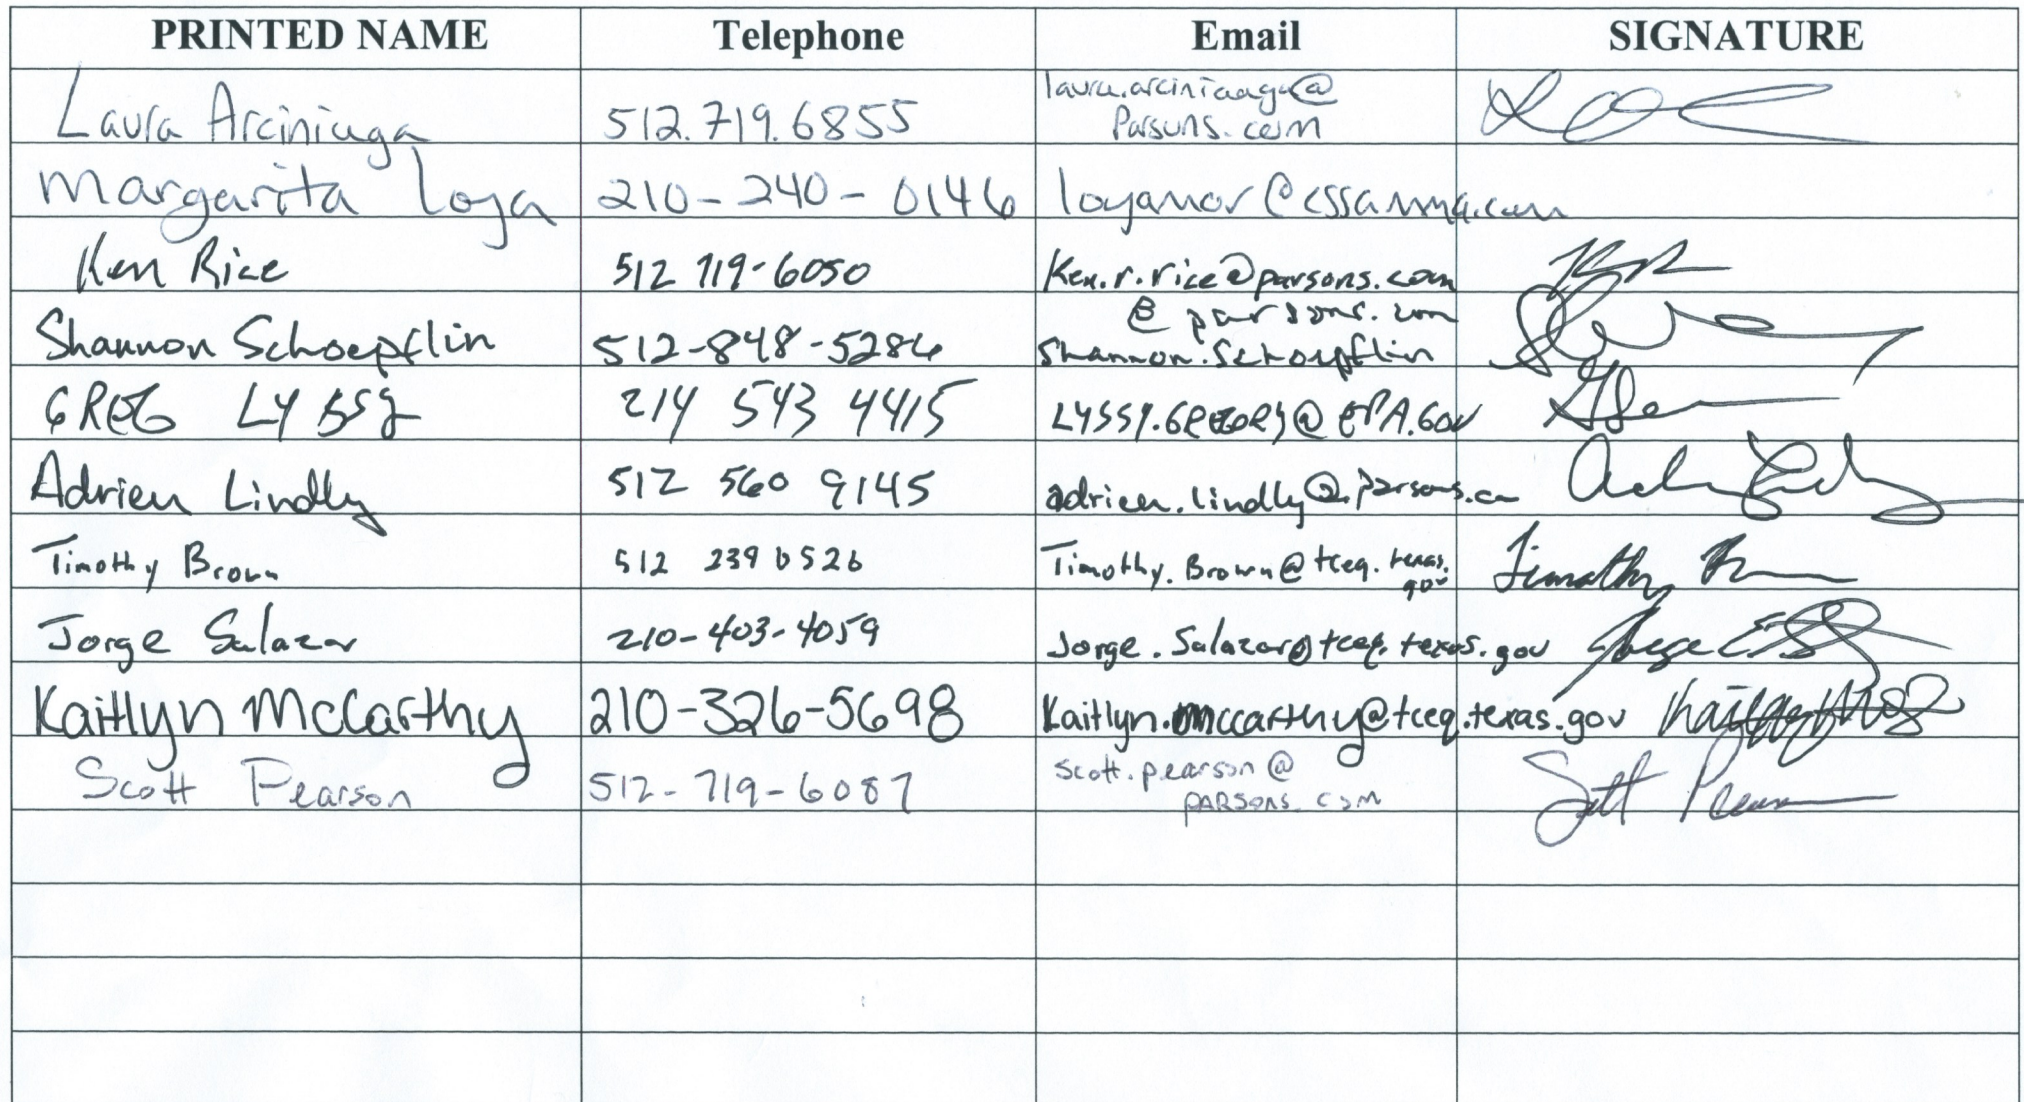 PRINTED NAME Telephone Email SIGNATURE
Laura Arciniaga 512.719.6855 laura.arciniaaga@
Parsons.com
Margarita Loya 210-240-0146
Ken Rice 512 719-6050 Ken.r.rice@parsons.com
@ parsons.com
Shannon Schoepflin 512-848-5286 Shannon.Schoepflin
GREG LYSSY 214 543 4415 LYSSY.GREGORY@EPA.GOV
Adrien Lindly 512 560 9145 adrien.lindly@parsons.com
Timothy Brown 512 239 0526 Timothy.Brown@tceq.texas. Timothy
gov
Jorge Salazar 210-403-4059 Jorge.Salazar@tceq.texas.gov Jorge
Kaitlyn McCarthy 210-326-5698 Kaitlyn.mccarthy@tceq.texas.gov
Scott Pearson 512-719-6087 scott.pearson@ Scott Pearson
PARSONS.COM